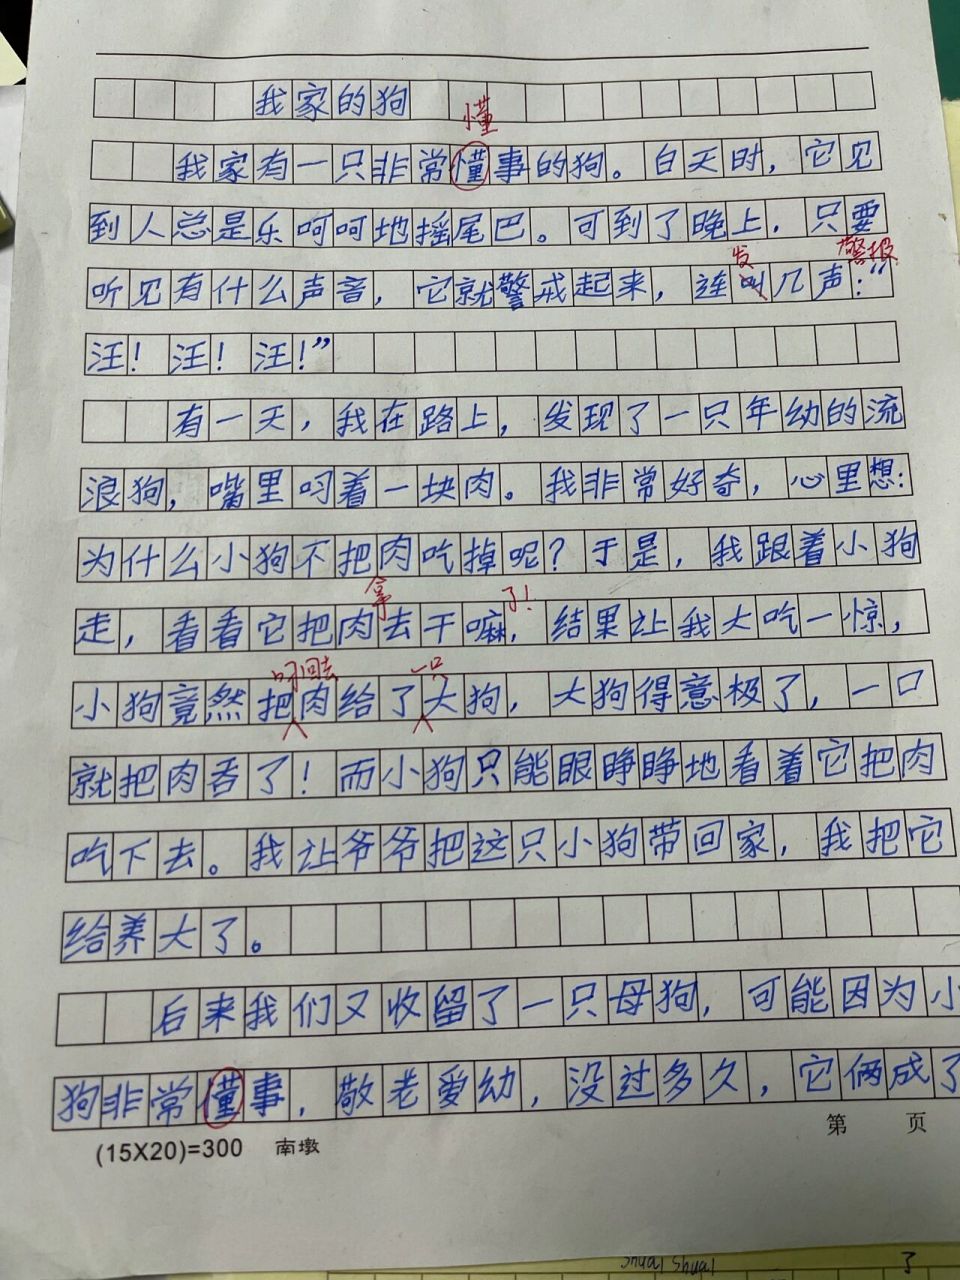 我家的狗
懂
我家有一只非常懂事的狗。白天时，它见
到人总是乐呵呵地摇尾巴。可到了晚上，只要
发 警报
听见有什么声音，它就警戒起来，连叫几声：“
汪！汪！汪！”
有一天，我在路上，发现了一只年幼的流
浪狗，嘴里叼着一块肉。我非常好奇，心里想：
为什么小狗不把肉吃掉呢？于是，我跟着小狗
拿 了！
走，看看它把肉去干嘛，结果让我大吃一惊，
叼回去 一只
小狗竟然把肉给了大狗，大狗得意极了，一口
就把肉吞了！而小狗只能眼睁睁地看着它把肉
吃下去。我让爷爷把这只小狗带回家，我把它
给养大了。
后来我们又收留了一只母狗，可能因为小
狗非常懂事，敬老爱幼，没过多久，它俩成了
(15X20)=300 南墩 第 页
shuai shuai